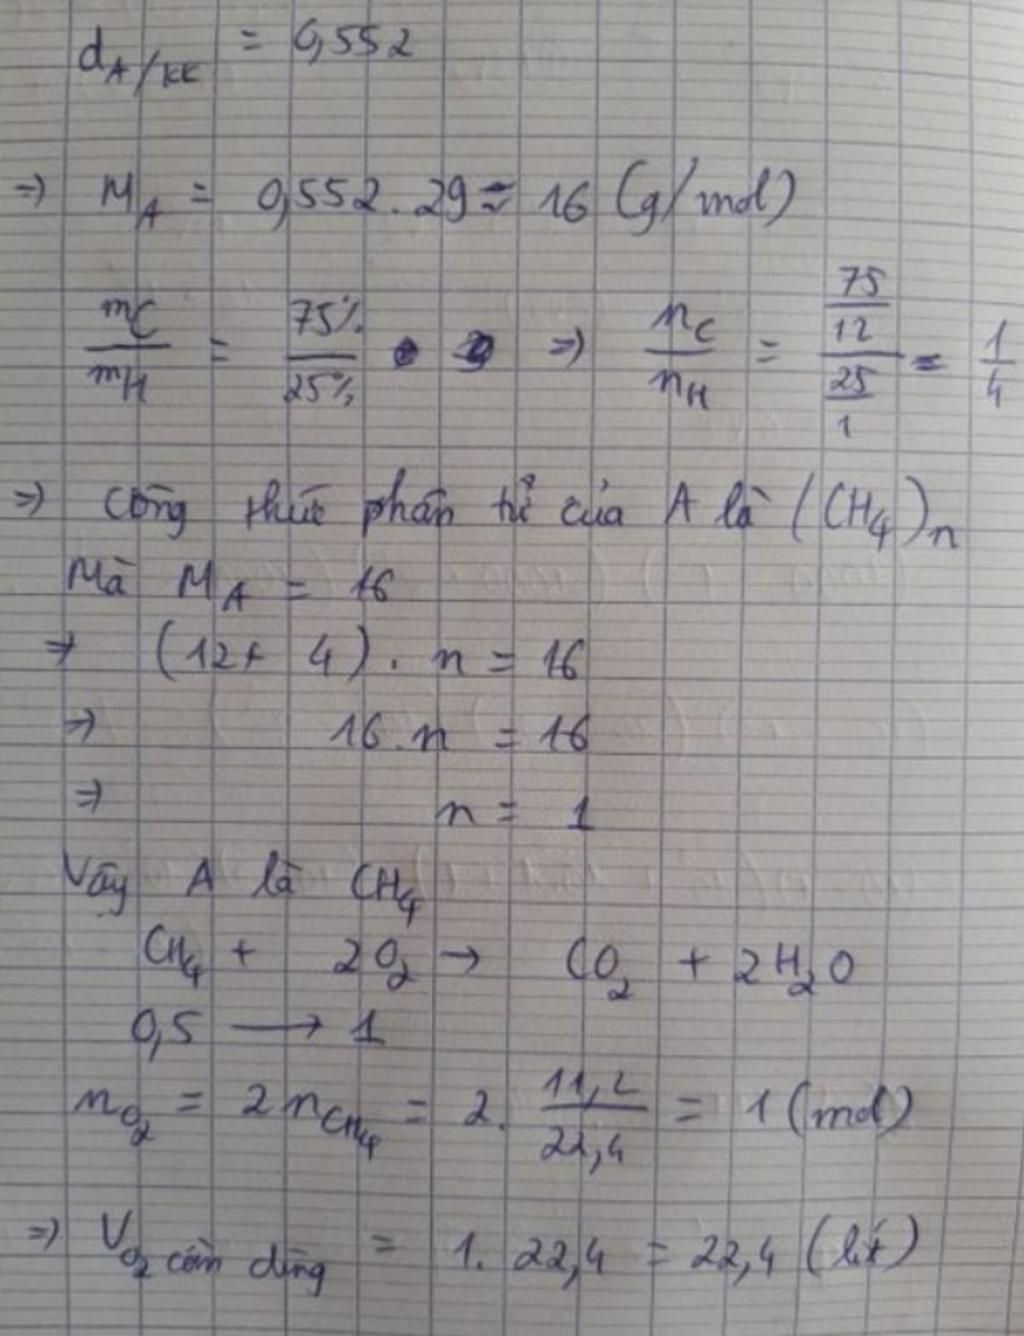 d_A/KK = 0,552
=> M_A = 0,552 . 29 ≈ 16 (g/mol)
mC/mH = 75%/25% => n_C/n_H = (75/12)/(25/1) = 1/4
=> Công thức phân tử của A là (CH₄)n
Mà M_A = 16
=> (12+ 4) . n = 16
=> 16.n = 16
=> n = 1
Vậy A là CH₄
CH₄ + 2O₂ → CO₂ + 2H₂O
0,5 → 1
n_O₂ = 2n_CH₄ = 2. 11,2/22,4 = 1 (mol)
=> V_O₂ cần dùng = 1. 22,4 = 22,4 (lít)